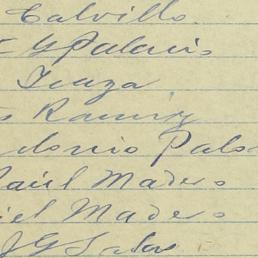 Calvillo.
G Palacio
Icaza
Ramirez
onio Pala
aúl Madero
iel Madero
J G Sala